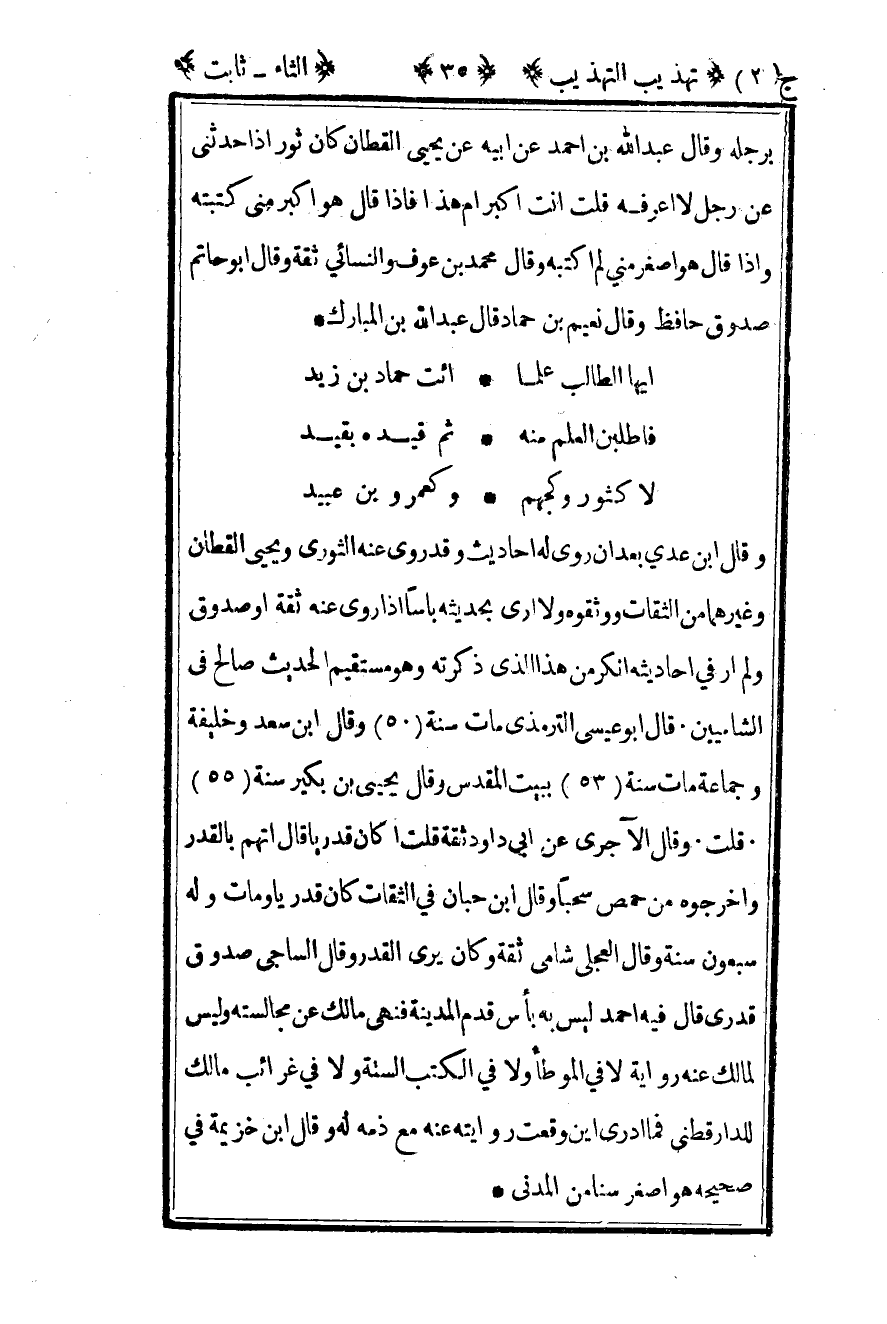 ج( ٢ ) ﴿ تهذيب التهذيب ﴾ ﴿ ٣٥ ﴾ ﴿ الثاء ـ ثابت ﴾
برجله وقال عبدالله بن احمد عن ابيه عن يحيى القطان كان ثور اذا حدثنى
عن رجل لا اعرفه قلت انت اكبر ام هذا فاذا قال هو اكبر منى كتبته
واذا قال هو اصغر مني لم اكتبه وقال محمد بن عوف والنسائي ثقة وقال ابو حاتم
صدوق حافظ وقال نعيم بن حماد قال عبدالله بن المبارك •
ايها الطالب علما • ائت حماد بن زيد
فاطلبن العلم منه • ثم قيده بقيد
لا كثور وكجهم • وكعمرو بن عبيد
و قال ابن عدي بعد ان روى له احاديث وقد روى عنه الثورى ويحيى القطان
وغيرهما من الثقات ووثقوه ولا ارى بحديثه باسا اذا روى عنه ثقة او صدوق
ولم ار في احاديثه انكر من هذا الذى ذكرته وهو مستقيم الحديث صالح فى
الشاميين · قال ابو عيسى الترمذى مات سنة ( ٥٠ ) وقال ابن سعد وخليفة
و جماعة مات سنة ( ٥٣ ) ببيت المقدس وقال يحيى بن بكير سنة ( ٥٥ )
· قلت · وقال الآجرى عن ابي داود ثقة قلت اكان قدريا قال اتهم بالقدر
واخرجوه من حمص سحبا وقال ابن حبان في الثقات كان قدريا ومات وله
سبعون سنة وقال العجلى شامى ثقة وكان يرى القدر وقال الساجى صدوق
قدرى قال فيه احمد ليس به بأس قدم المدينة فنهى مالك عن مجالسته وليس
لمالك عنه رواية لا في الموطأ ولا في الكتب الستة ولا في غرائب مالك
للدارقطنى فما ادرى اين وقعت روايته عنه مع ذمه له وقال ابن خزيمة في
صحيحه هو اصغر سنا من المدنى •